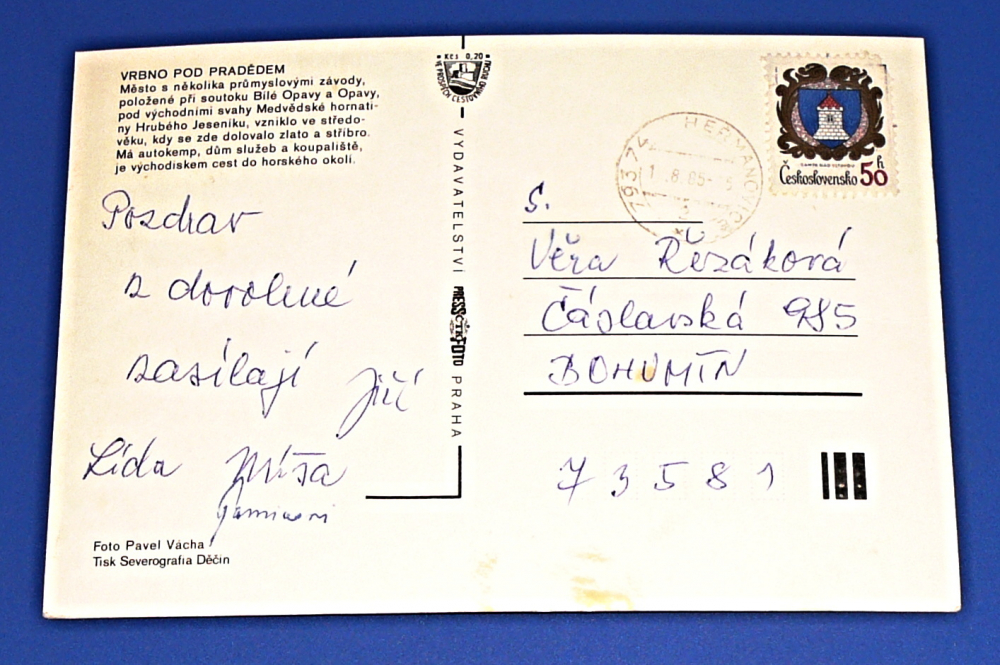 VRBNO POD PRADĚDEM
Město s několika průmyslovými závody,
položené při soutoku Bílé Opavy a Opavy,
pod východními svahy Medvědské hornati-
ny Hrubého Jeseníku, vzniklo ve středo-
věku, kdy se zde dolovalo zlato a stříbro.
Má autokemp, dům služeb a koupaliště,
je východiskem cest do horského okolí.
Pozdrav
z dovolené
zasílají
Jiří
Lída
Míša
Foto Pavel Vácha
Tisk Severografia Děčín
Kčs 0,20
VE PROSPĚCH CESTOVNÍHO RUCHU
VYDAVATELSTVÍ PRESSFOTO PRAHA
ČTK
79374 HEŘMANOVICE
Československo 50 h
S.
Věra Řezáková
Čáslavská 985
BOHUMÍN
73581